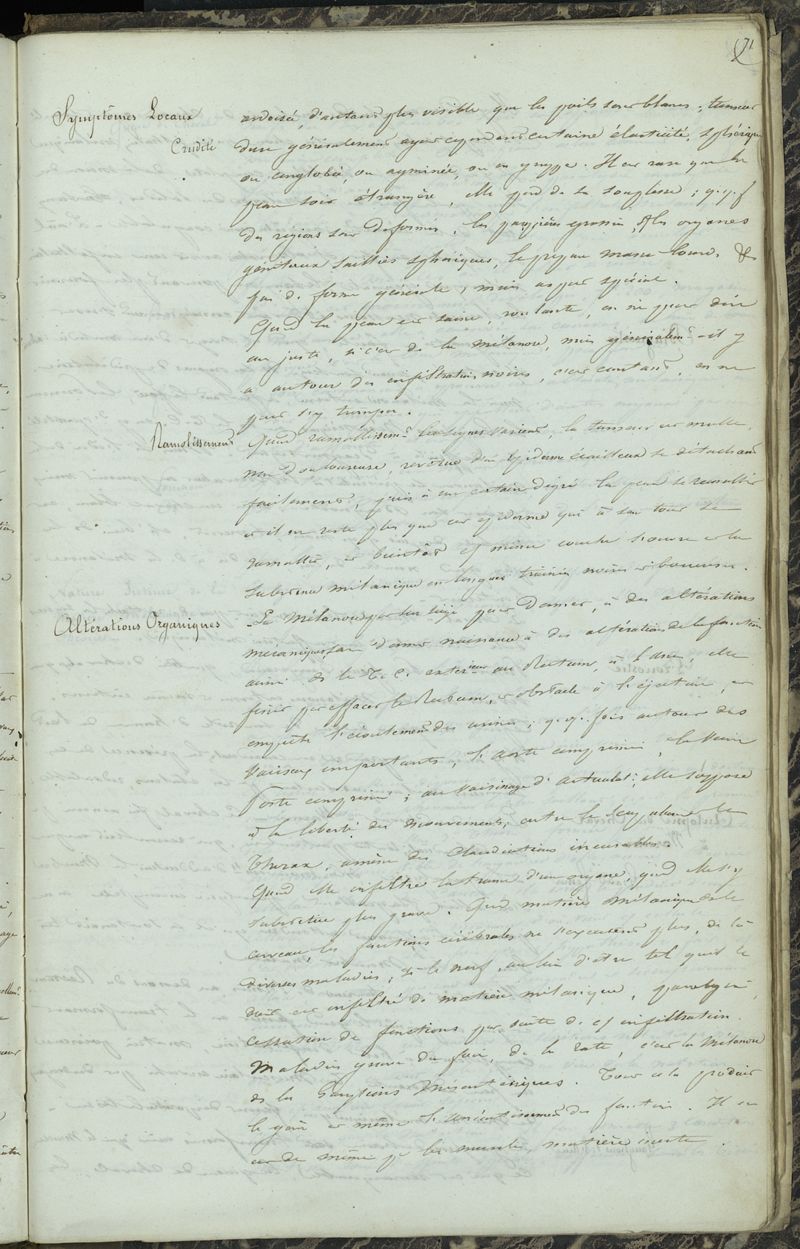 71
Symptômes Locaux
Crudité
ardoisé, d'autant plus visible que les poils sont blancs, tumeur
dure généralement ayant cependant certaine élasticité, sphérique
ou conglobée, ou agminée, ou en grappe. Il est rare que la
peau soit étrangère, elle perd de sa souplesse ; q.q.f
des régions sont déformées, les paupières grossies, les organes
génitaux saillies sphériques, le prépuce masse lourde, &
pas de forme générale, mais aspect spécial.
Quand la peau est saine, roulante, on ne peut dire
au juste, si c'est de la mélanose, mais généralemt il y
a autour des infiltrations noires, c'est constant, on ne
peut s'y tromper.
Ramollissement
Quand ramollissemt les signes varient, la tumeur est molle,
non douloureuse, revêtue d'un épiderme écailleux se détachant
facilement, puis à un certain degré la peau se ramollit
et il ne reste plus que cet épiderme qui à son tour se
ramollit, et bientôt cette même couche s'ouvre et la
substance mélanique en longues traînées noires et boueuses.
Altérations Organiques
La Mélanose par son siège peut donner, à des altérations
mécaniques, donner naissance à des altérations de la fonction
ainsi de le T. C. extérieur au Rectum, à l'anus, elle
finit par effacer le Rectum, et obstacle à l'éjection, et
empêche l'écoulement des urines ; q.q. fois autour des
vaisseaux importants, l'aorte comprimée, la Veine
Porte comprimée ; au voisinage d'articulat; elle s'oppose
à la liberté des mouvements ; entre le scapulum et le
Thorax, amène des claudications incurables.
Quand elle infiltre la trame d'un organe, quand elle s'y
substitue plus grave. Quand matière mélanique de le
cerveau, les fonctions cérébrales ne s'exécutent plus, de là
diverses maladies ; si le nerf, au lieu d'être tel qu'il le
doit est infiltré de matière mélanique, paralysie,
cessation de fonctions par suite de cette infiltration.
Maladies graves du foie, de la rate, c'est la Mélanose
de les Ganglions Mésentériques. Tout cela produit
le gêne et même l'anéantissement des fonction. Il en
est de même pr les muscles, matière inerte.